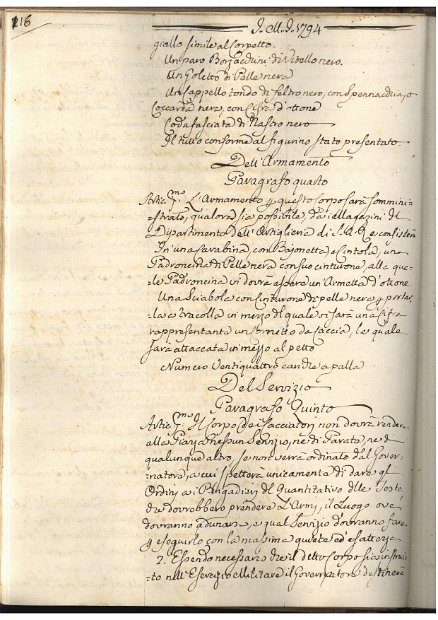 116
I. M. I. 1794
giallo simile al Corpetto.
Un paro Borzacchini di Vitello nero.
Un Goletto di Pelle nera
Un Cappello tondo di feltro nero, con Spennacchiajo
Coccarda nera, con Cifra d'ottone
Coda fasciata di Nastro nero
Il tutto conforme al figurino Stato presentato
Dell'Armamento
Paragrafo quarto
Artic. 1.mo L'Armamento p questo Corpo sarà sommini-
strato, qualora sia possibile, dai Magazini del
Dipartimento dell'Artiglieria di S.A.E. e consisterà
In una Carabina con Bajonetta, e Cintola, una
Padroncina di Pelle nera con suo cinturone, alla qua-
le Padroncina vi dovrà essere un'Armetta d'ottone.
Una Sciabola con Cinturone di pelle nera p portar-
la a tracolla in mezzo del quale vi sarà una Cifra
rappresentante un Cornetto da Caccia, la quale
sarà attaccata in mezzo al petto
Numero Ventiquattro cariche a palla
Del Servizio
Paragrafo Quinto
Artic. 1.mo Il Corpo dei Cacciatori non dovrà rendere
alla Piazza nessun Servizio, nè di Parata, nè di
qualunque altro, se non verrà ordinato dal Gover-
natore, a cui spetterà unicamente di dare gl'
Ordini ai del Quantitativo delle Poste
che dovrebbero prendere l'Armi, il Luogo ove
dovranno adunarsi, e qual Servizio dovranno fare,
p eseguirlo con la massima quiete ed esattezza
2. Essendo necessario che il detto Corpo sia istrui-
to nell'Esercizio Militare il Governatore destinerà